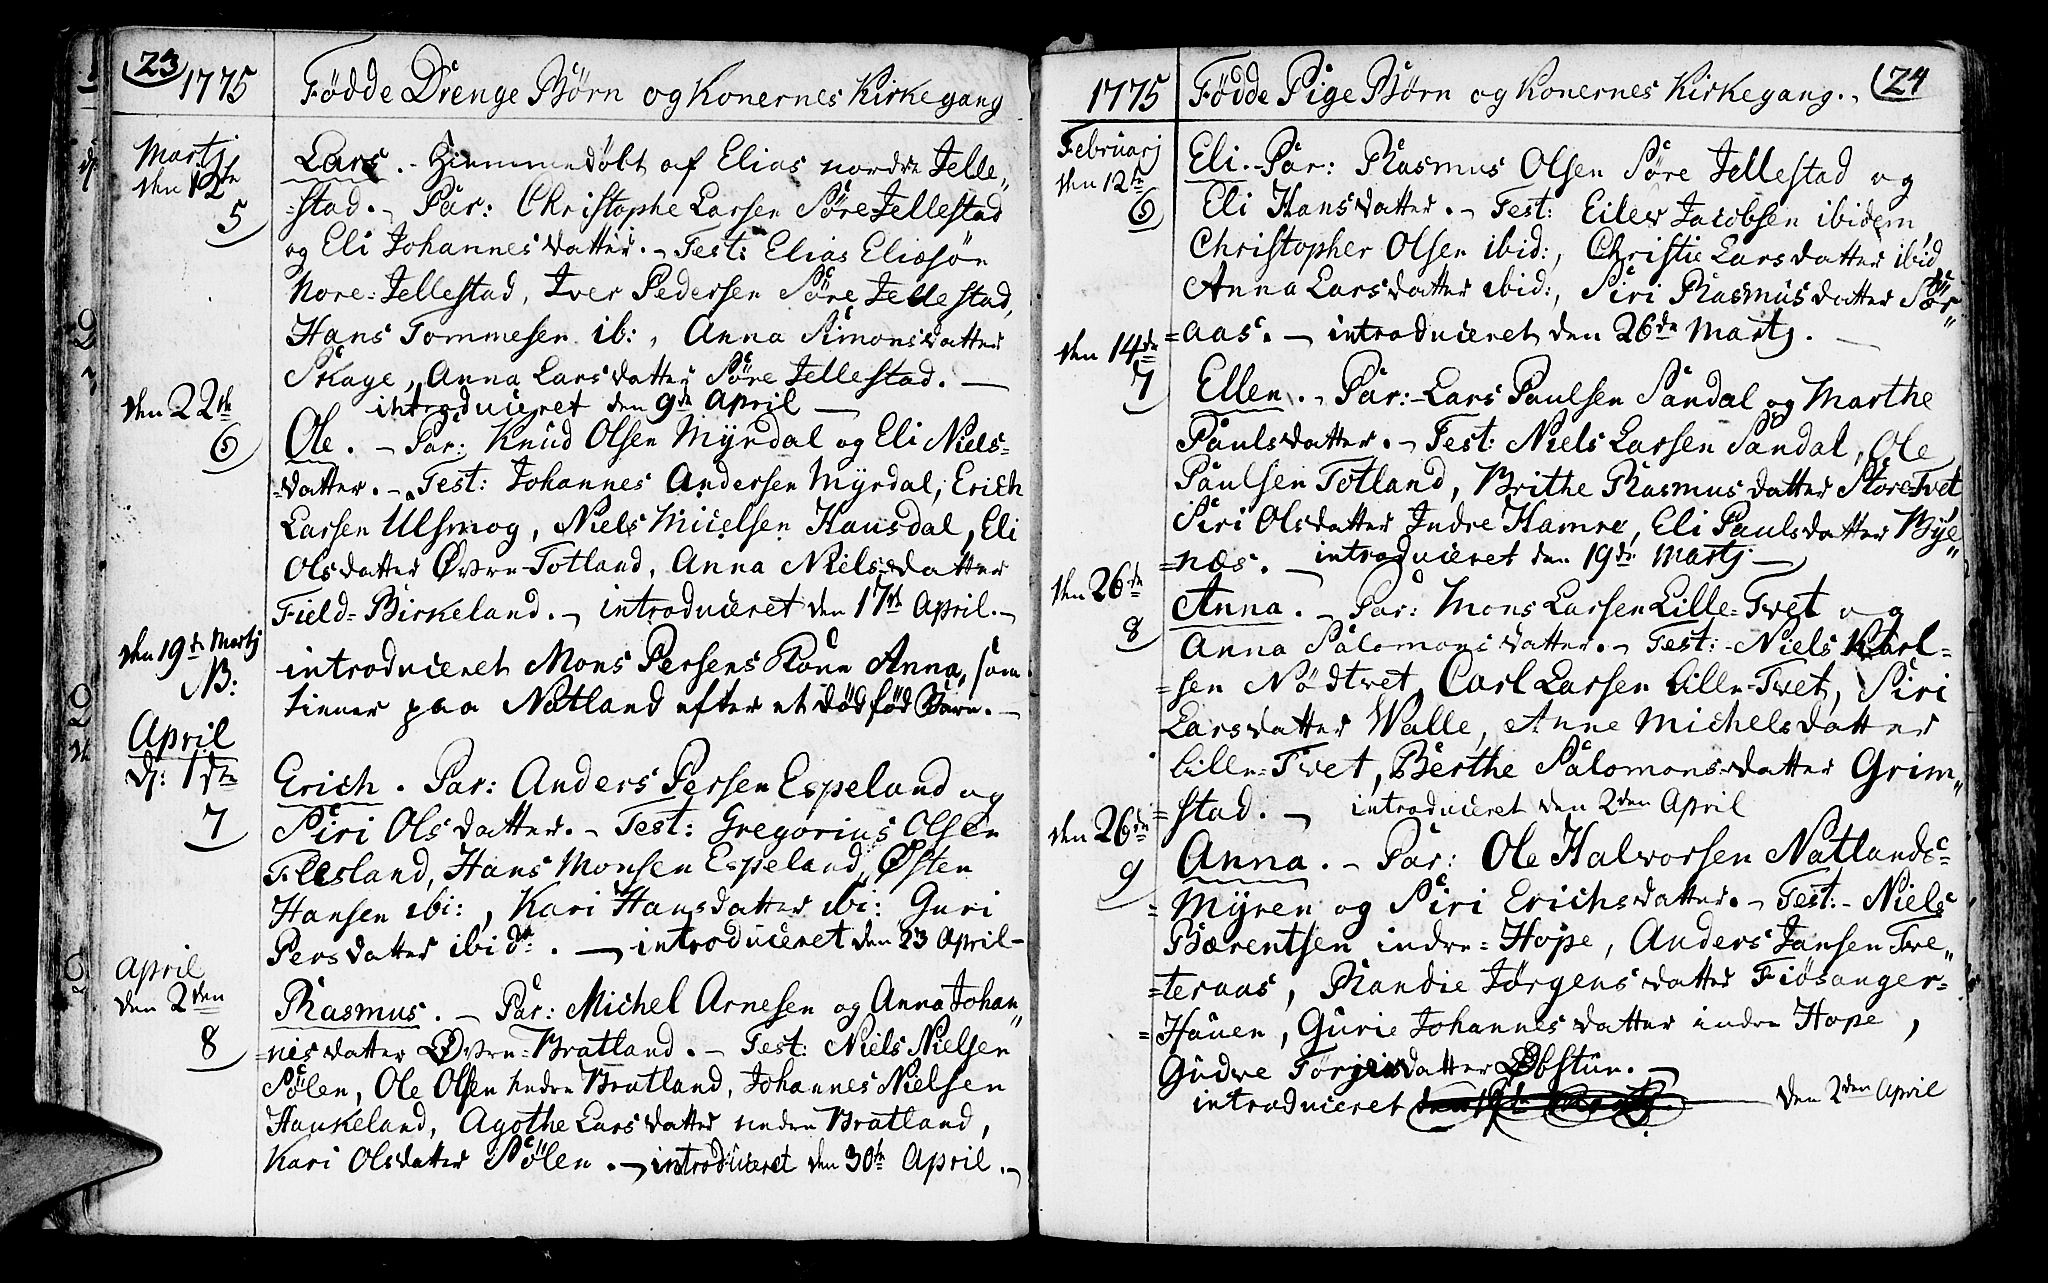 23
1775 Fødde Drenge Børn og Konernes Kirkegang
Martj
den 12te
5
Lars. - Hiemmedøbt af Elias nordre Jelle„
=stad. - Par: Christophe Larsen Søre Jellestad
og Eli Johannesdatter. - Test: Elias Eliasøn
Nore=Jellestad, Iver Pedersen Søre Jellestad,
Hans Tommesen ib:, Anna Simonsdatter
Skage, Anna Larsdatter Søre Jellestad. -
introduceret den 9de April -
den 22de
6
Ole. - Par: Knud Olsen Myrdal og Eli Niels=
=datter. - Test: Johannes Andersen Myrdal, Erich
Larsen Ulsmog, Niels Micelsen Hausdal, Eli
Olsdatter Øvre=Totland, Anna Nielsdatter
Field=Birkeland. - introduceret den 17de April. -
den 19de Martj
NB:
introduceret Mons Persens Kone Anna, som
tienner paa Natland efter et død fød Barn. -
April
d: 1ste
7
Erich. Par: Anders Persen Espeland og
Siri Olsdatter. - Test: Gregorius Olsen
Flesland, Hans Monsen Espeland, Østen
Hansen ibi:, Kari Hansdatter ibi: Guri
Persdatter ibid:. - introduceret den 23 April -
April
den 2den
8
Rasmus. - Par: Michel Arnesen og Anna Johan„
=nisdatter Øvre=Bratland. - Test: Niels Nielsen
Sølen, Ole Olsen nedre Bratland, Johannes Nielsen
Haukeland, Agothe Larsdatter nedre Bratland,
Kari Olsdatter Sølen. - introduceret den 30te April. -
24
1775 Fødde Pige Børn og Konernes Kirkegang. -
Februarj
den 12te
6
Eli. - Par: Rasmus Olsen Søre Jellestad og
Eli Hansdatter. - Test: Eilev Jacobsen ibidem,
Christopher Olsen ibid:, Christie Larsdatter ibid,
Anna Larsdatter ibid:, Siri Rasmusdatter Sør„
=aas. - introduceret den 26de Martj. -
den 14de
7
Ellen. - Par: - Lars Paulsen Sandal og Marthe
Paulsdatter. - Test: Niels Larsen Sandal, Ole
Paulsen Totland, Brithe Rasmusdatter Store Tvet
Siri Olsdatter Indre Hamre, Eli Paulsdatter Bye„
=næs. - introduceret den 19de Martj -
den 26de
8
Anna. - Par: Mons Larsen Lille=Tvet og
Anna Salomonsdatter. - Test: - Niels Karl=
=sen Nødtvet, Carl Larsen Lille=Tvet, Siri
Larsdatter Walle, Anne Michelsdatter
Lille=Tvet, Berthe Salomonsdatter Grim„
=stad. - introduceret den 2den April
den 26de
9
Anna. - Par: Ole Halvorsen Natlands=
=Myren og Siri Erichsdatter. - Test: - Niels
Bærentsen indre=Hope, Anders Jansen Tve„
=teraas, Randie Jørgensdatter Fiøsanger=
=Hauen, Gurie Johannesdatter indre Hope,
Gudve Torjeisdatter Øbstun. -
introduceret den 2den April